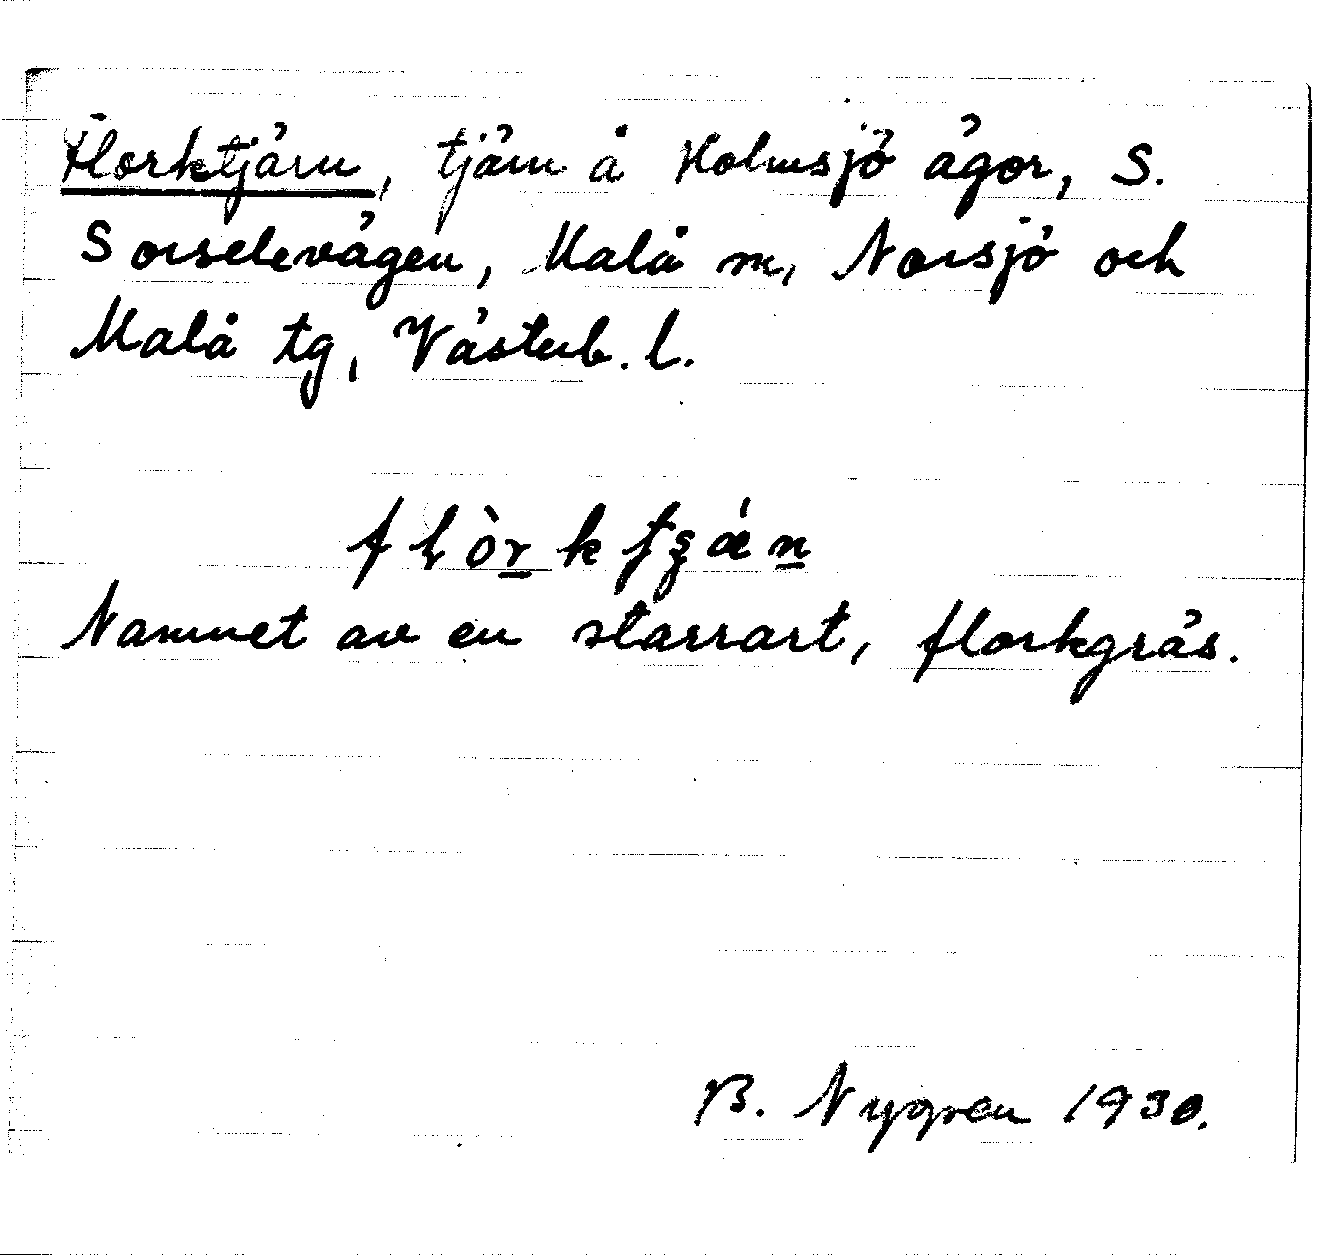 Florktjärn, tjärn å Holmsjö ägor, S.
Sorselevägen, Malå sn, Norsjö och
Malå tg, Västerb. l.
flòrktʒǽn
Namnet av en starrart, florkgräs.
B. Nygren 1930.